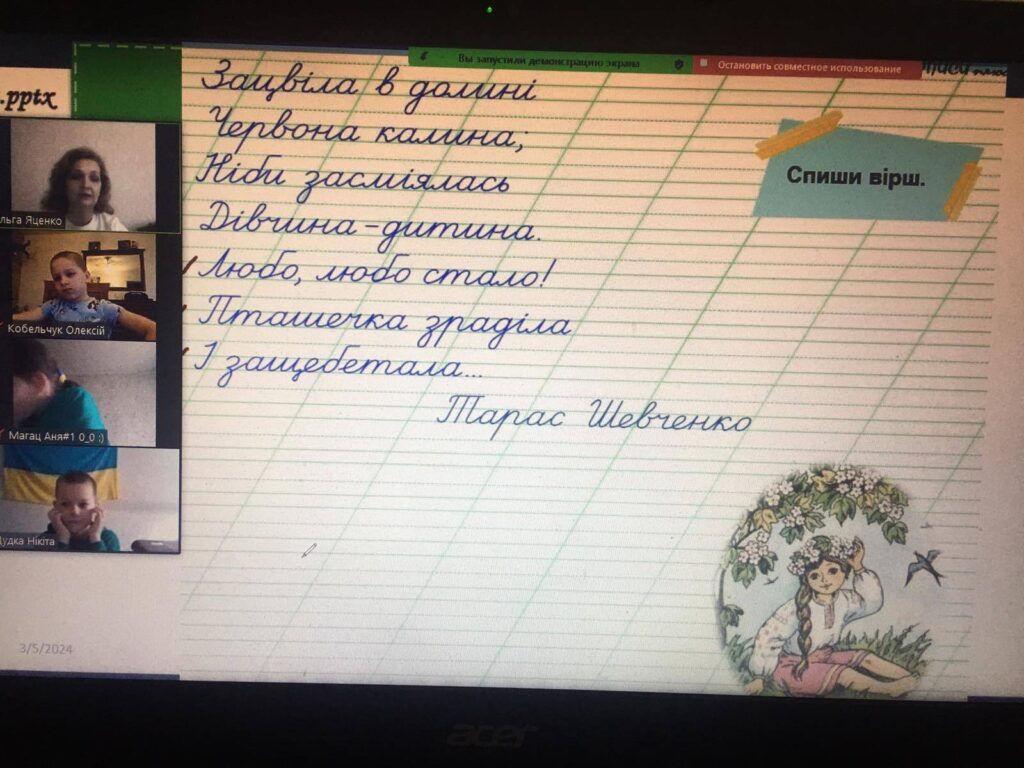 Вы запустили демонстрацию экрана
Остановить совместное использование
.pptx
Зацвіла в долині
Червона калина;
Ніби засміялась
Дівчина-дитина.
Любо, любо стало!
Пташечка зраділа
І защебетала...
Тарас Шевченко
Спиши вірш.
льга Яценко
Кобельчук Олексій
Магац Аня#1 0_0 :)
Дудка Нікіта
3/5/2024
acer